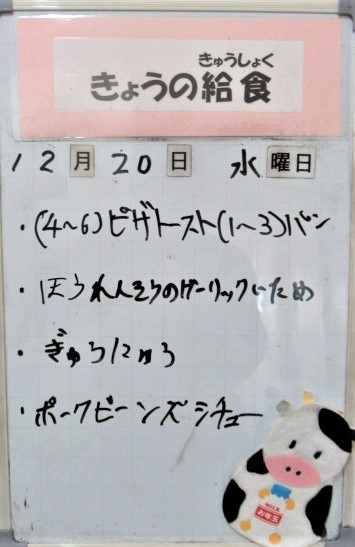 きゅうしょく
きょうの給食
12月20日 水曜日
・(4～6)ピザトースト(1～3)パン
・ほうれんそうのガーリックいため
・ぎゅうにゅう
・ポークビーンズシチュー
MILK
お年玉